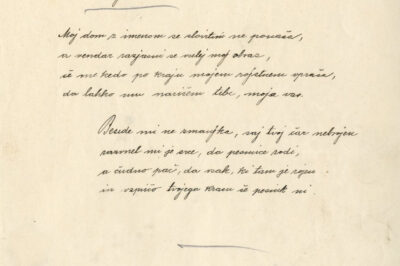 Moj dom z imenom se slovečim ne ponaša,
a vendar razjasni se velej moj obraz,
če me kedo po kraju mojem rojstnem vpraša,
da lahko mu narišem tebe, moja vas.
Besede mi ne zmanjka, saj tvoj čar nebrojen
razvnel mi je srce, da pesmice rodi,
a čudno pač, da vsak, ki tam je rojen
in vzpričo tvojega krasu še pesnik ni.